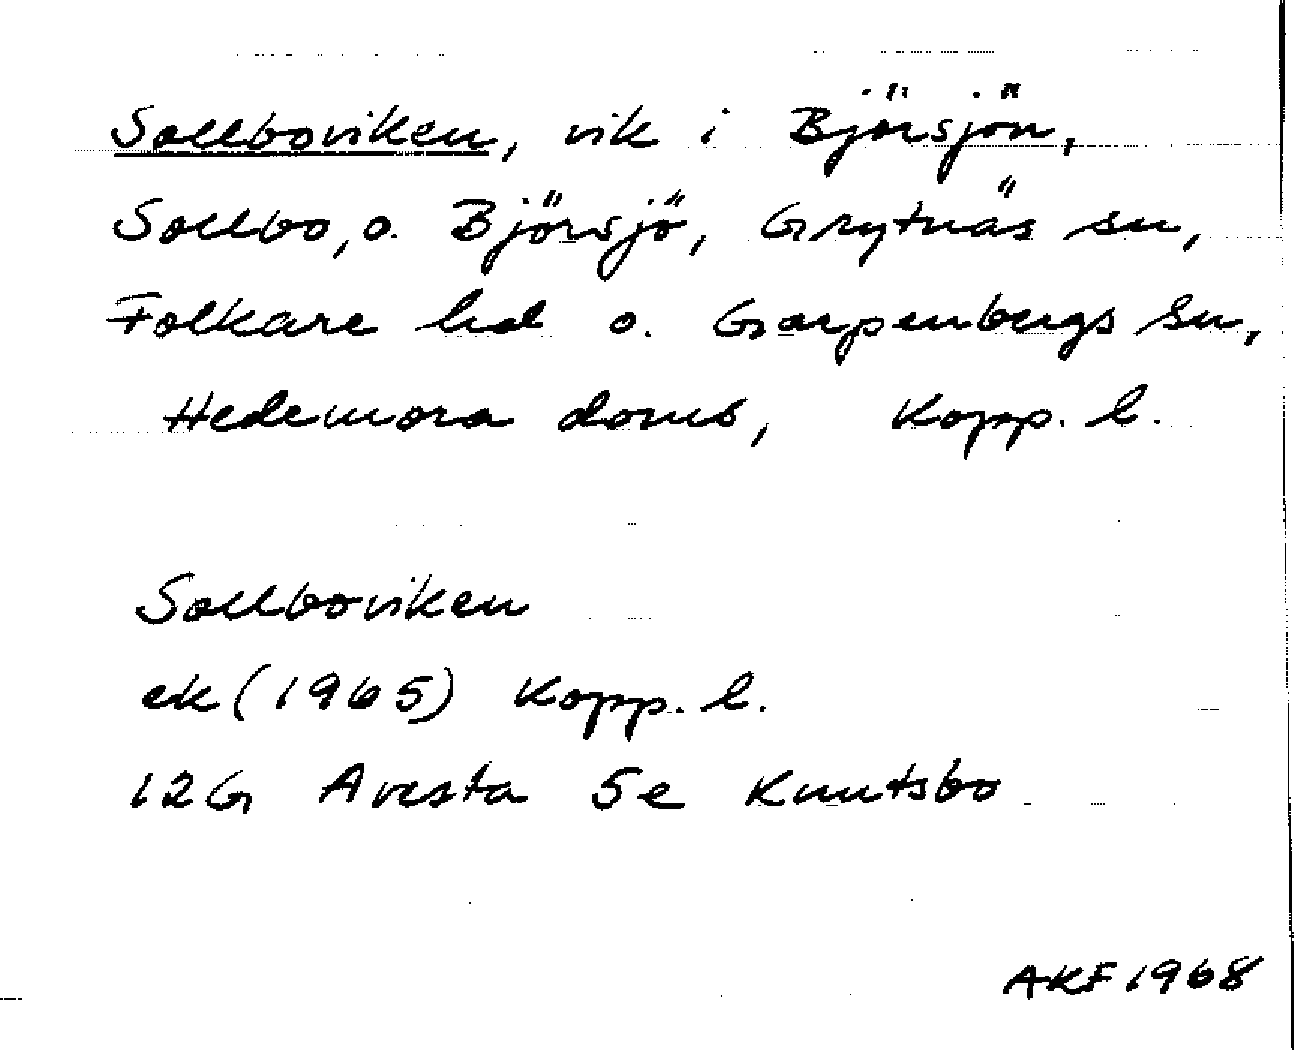 Sollboviken, vik i Björsjön,
Sollbo, o. Björsjö, Grytnäs sn,
Folkare hd o. Garpenbergs sn,
Hedemora doms, Kopp. l.
Sollboviken
ek (1965) Kopp. l.
12G Avesta 5e Knutsbo
AKF 1968